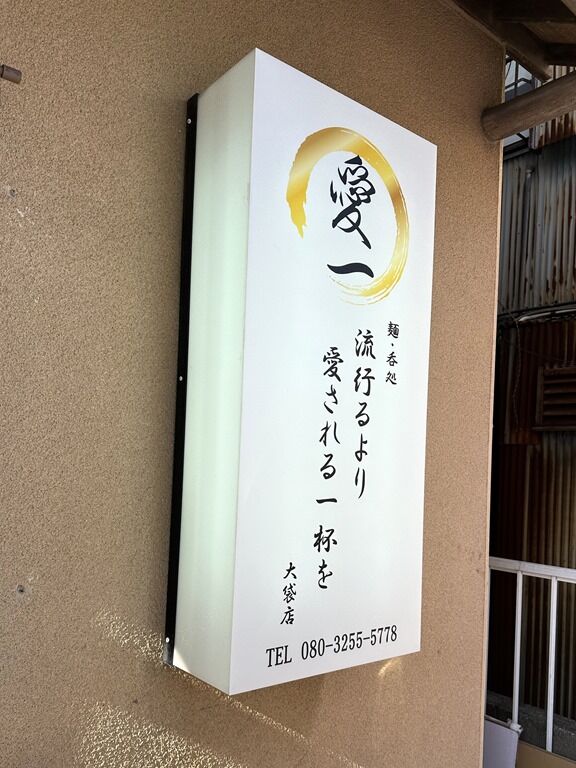 愛一
麺・呑処
流行るより
愛される一杯を
大袋店
TEL 080-3255-5778